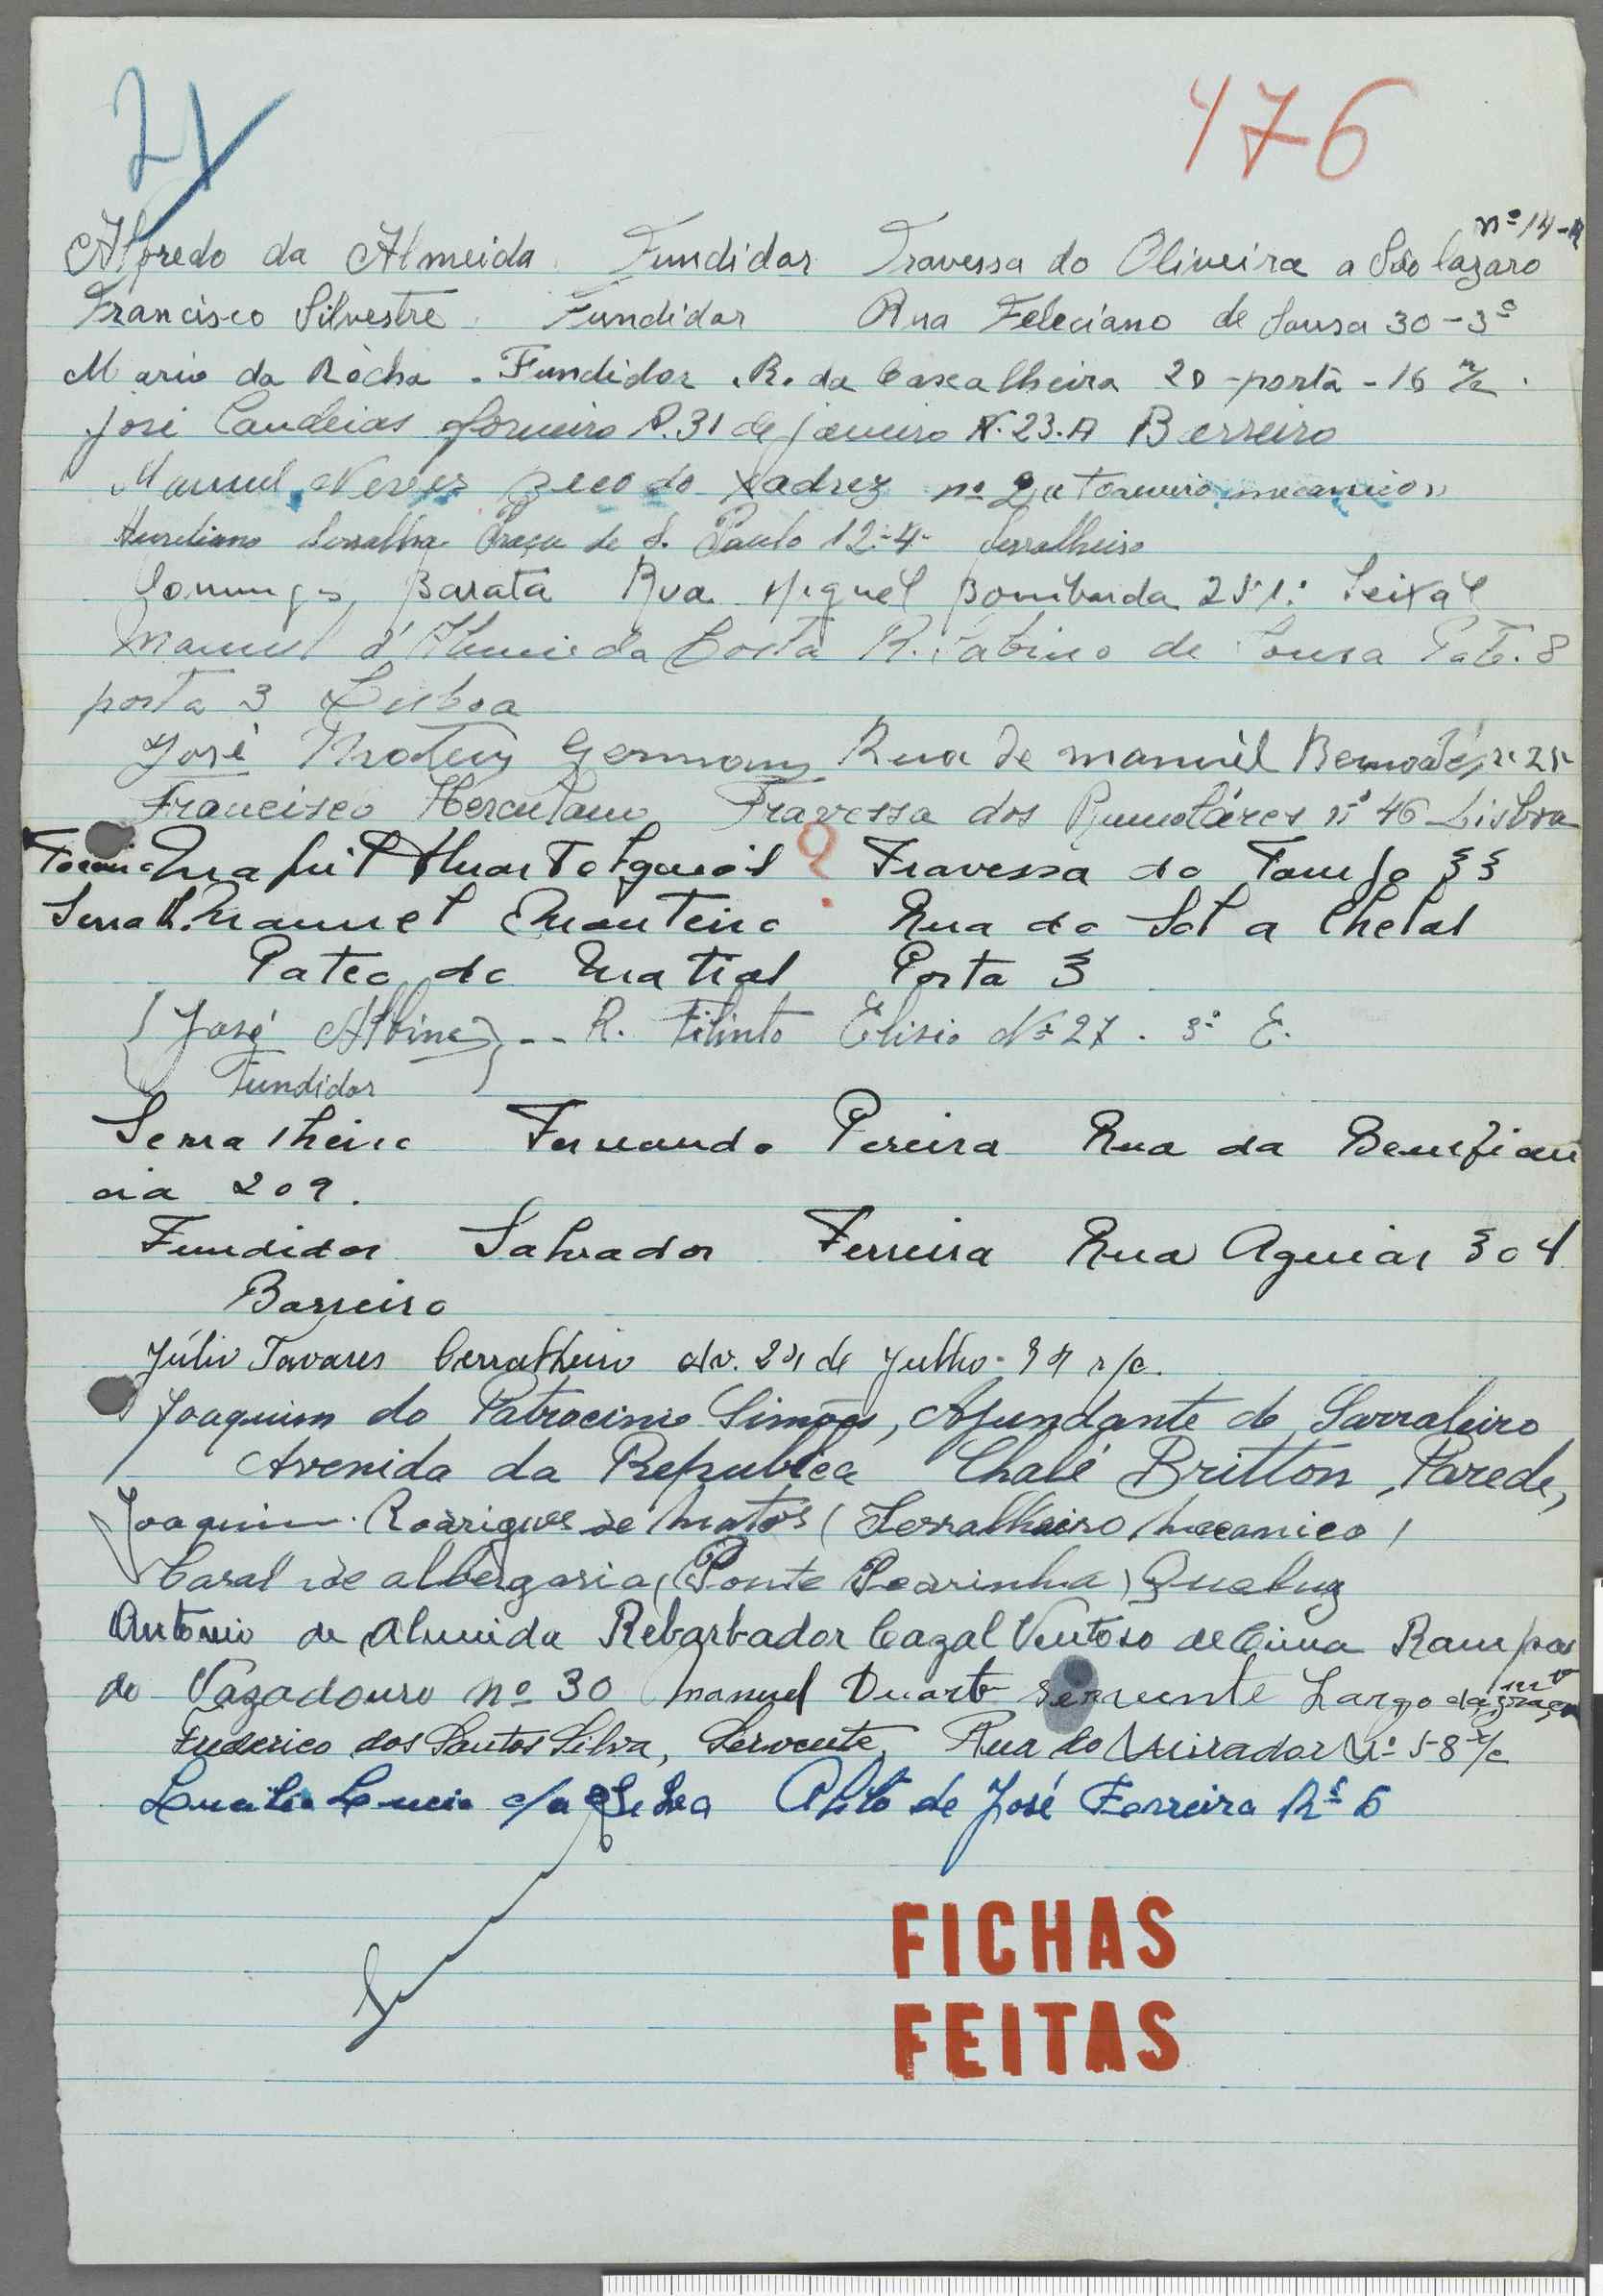 21
476
nº 14-A
Alfredo da Almeida Fundidor Travessa do Oliveira a São Lazaro
Francisco Silvestre Fundidor Rua Feleciano de Sousa 30-3º
Mario da Rocha - Fundidor . R. da Cascalheira 20 -porta - 16 r/c .
José Candeias forneiro R. 31 de janeiro N. 23. A Berreiro
Manuel Neves Beco do Xadrez nº 2 torneiro mecanico
Aureliano Serralha Praça de S. Paulo 12-4- Serralheiro
Domingos Barata Rua Miguel Bombarda 25 1º Seixal
Manuel d'Almeida Costa R. Sabino de Sousa Pat. 8
porta 3 Lisboa
José Germano Rua de manuel Bernardes
Francisco Herculano Travessa dos Rumolares nº 46 Lisboa
Travessa do 33
Serralh. Manuel Monteiro Rua do Sol a Chelas
Pateo do Porta 3
José Albino -- R. Filinto Elisio Nº 27 . 3º E.
Fundidor
Serralheiro Fernando Pereira Rua da Beneficen
cia 209.
Fundidor Salvador Ferreira Rua Aguiar 304
Barreiro
Júlio Tavares Cerralheiro Av. 24 de Julho - r/c.
Joaquim do Patrocinio Simões, Ajundante de Sarraleiro
Avenida da Republica Chalé Britton, Parede,
Joaquim Rodrigues de Matos (Serralheiro Mecanico)
Casal de albergaria, (Ponte Pedrinha) Queluz
Antonio de Almeida Rebarbador Cazal Ventoso de Cima Rampa
do Vazadouro nº 30 Manuel Duarte servente Largo da
Frederico dos Santos Silva, Servente, Rua do Mirador Nº 58 r/c
da Silva Alto de José Ferreira 6
FICHAS
FEITAS